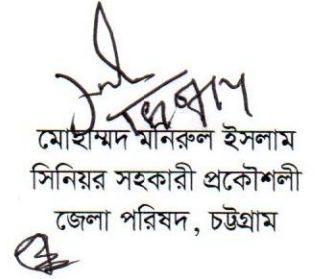 মোহাম্মদ মনিরুল ইসলাম
সিনিয়র সহকারী প্রকৌশলী
জেলা পরিষদ, চট্টগ্রাম